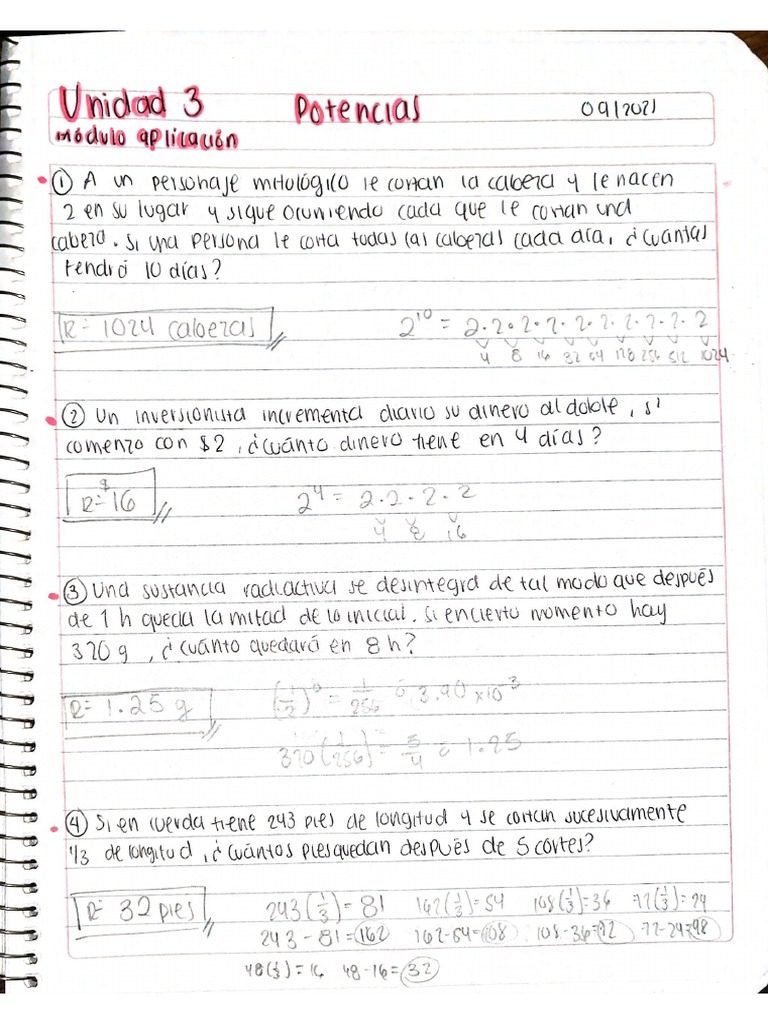 Unidad 3 Potencias 09/2021
módulo aplicación
① A un personaje mitológico le cortan la cabeza y le nacen
2 en su lugar y sigue ocurriendo cada que le cortan una
cabeza. Si una persona le corta todas las cabezas cada día, ¿cuántas
tendrá 10 días?
R= 1024 cabezas 2¹⁰ = 2·2·2·2·2·2·2·2·2·2
4 8 16 32 64 128 256 512 1024
② Un inversionista incrementa diario su dinero al doble, si
comenzo con $2, ¿cuánto dinero tiene en 4 días?
R= $16 2⁴ = 2·2·2·2
4 8 16
③ Una sustancia radiactiva se desintegra de tal modo que después
de 1 h queda la mitad de lo inicial. Si en cierto momento hay
320 g, ¿cuánto quedará en 8 h?
R= 1.25 g (1/2)⁸ = 1/256 ó 3.90 x10⁻³
320(1/256) = 5/4 = 1.25
④ Si en cuerda tiene 243 pies de longitud y se cortan sucesivamente
1/3 de longitud, ¿cuántos pies quedan después de 5 cortes?
R= 32 pies 243(1/3)=81 162(1/3)=54 108(1/3)=36 72(1/3)=24
243-81=162 162-54=108 108-36=72 72-24=48
48(1/3)=16 48-16=32